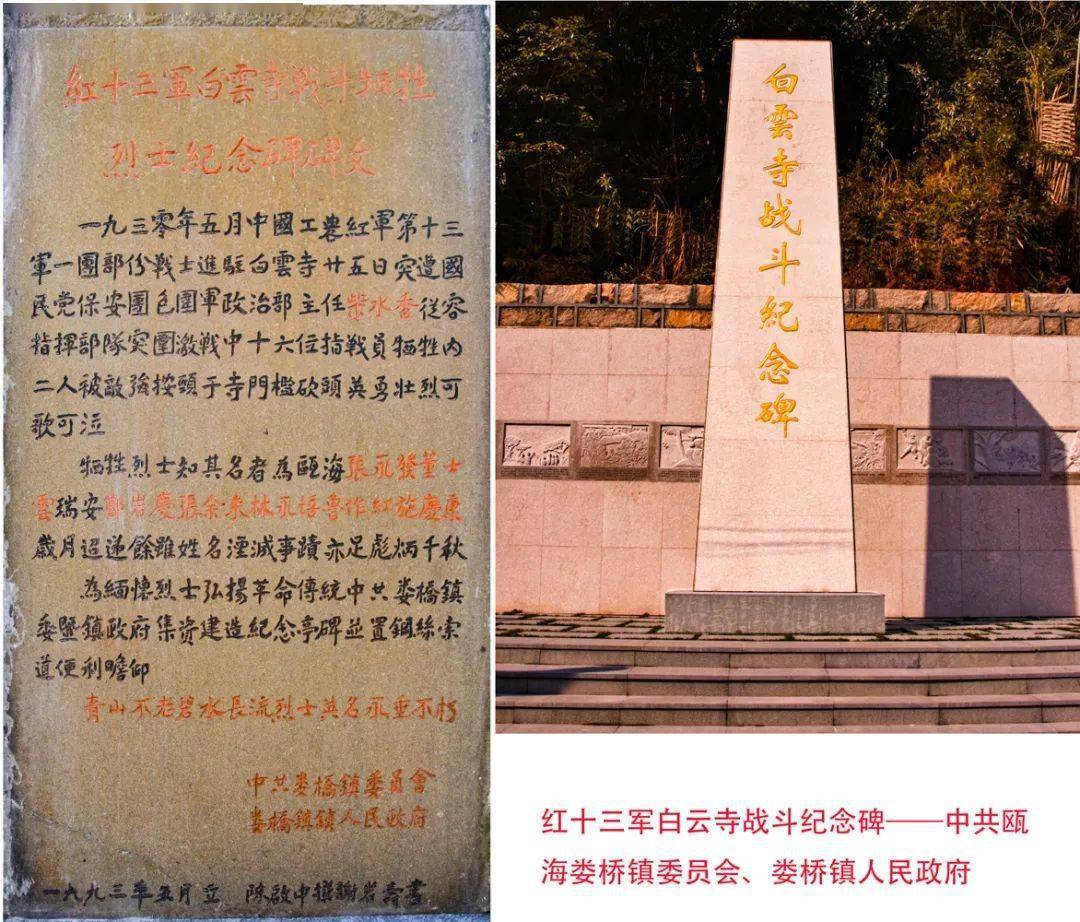 紅十三軍白雲寺戰斗牺牲
烈士紀念碑碑文
一九三零年五月中國工農紅軍第十三
軍一團部份戰士進駐白雲寺廿五日突遭國
民党保安團包圍軍政治部主任柴水香從容
指揮部隊突圍激戰中十六位指戰員牺牲内
二人被敵強按頭于寺門檻砍頭英勇壮烈可
歌可泣
牺牲烈士知其名者為甌海張永發董士
雲瑞安鄭岩慶張余來林永悟魯作紅施慶東
歲月迢递餘雖姓名湮滅事蹟亦足彪炳千秋
為緬懷烈士弘揚革命傳統中共娄橋鎮
委暨鎮政府集资建造紀念亭碑並置鋼絲索
道便利瞻仰
青山不老碧水長流烈士英名永垂不朽
中共娄橋鎮委員會
娄橋鎮鎮人民政府
一九九三年五月立 陳啟中撰謝岩壽書
白雲寺战斗紀念碑
红十三军白云寺战斗纪念碑——中共瓯
海娄桥镇委员会、娄桥镇人民政府